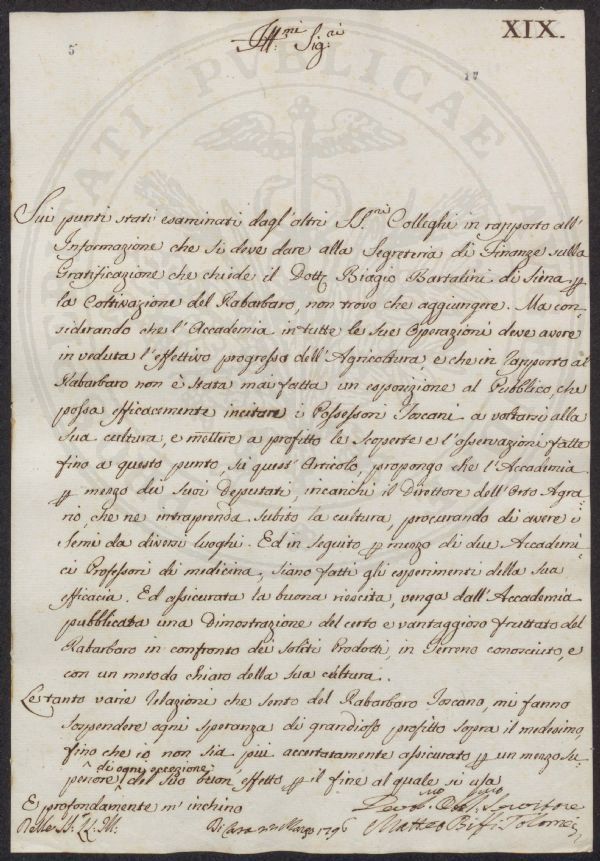 XIX.
5
17
Ill:mi Sig:ri
Sui punti stati esaminati dagl'altri SS:ri Colleghi in rapporto all'
Informazione che si deve dare alla Segreteria di Finanze sulla
Gratificazione che chiede il Dott: Biagio Bartalini di Siena p
la Coltivazione del Rabarbaro, non trovo che aggiungere. Ma con-
siderando che l'Accademia in tutte le sue Operazioni deve avere
in veduta l'effettivo progresso dell'Agricoltura, e che in rapporto al
Rabarbaro non è stata mai fatta un esposizione al Pubblico, che
possa efficacemente incitare i Possessori Toscani a voltarsi alla
sua cultura, e mettere a profitto le scoperte e l'osservazioni fatte
fino a questo punto, su quest'Articolo, propongo che l'Accademia
p mezzo dei suoi Deputati, incarichi il Direttore dell'Orto Agra-
rio, che ne intraprenda subito la cultura, procurando di avere i
semi da diversi luoghi. Ed in seguito p mezzo di due Accademi-
ci Professori di medicina, siano fatti gli esperimenti della sua
efficacia. Ed assicurata la buona riescita, venga dall'Accademia
pubblicata una Dimostrazione del certo e vantaggioso fruttato del
Rabarbaro in confronto dei soliti Prodotti, in Terreno conosciuto, e
con un metodo chiaro della sua cultura.
Le tanto varie relazioni che sento del Rabarbaro Toscano, mi fanno
sospendere ogni speranza di grandioso profitto sopra il medesimo,
fino che io non sia più accertatamente assicurato p un mezzo su-
periore di ogni eccezione del suo buon effetto p il fine al quale si usa
E profondamente m'inchino
Delle SS. LL. Ill:
Di Casa Marzo 1796
Dev:mo Obb: Servitore
Matteo Biffi Tolomei
PUBLICAE